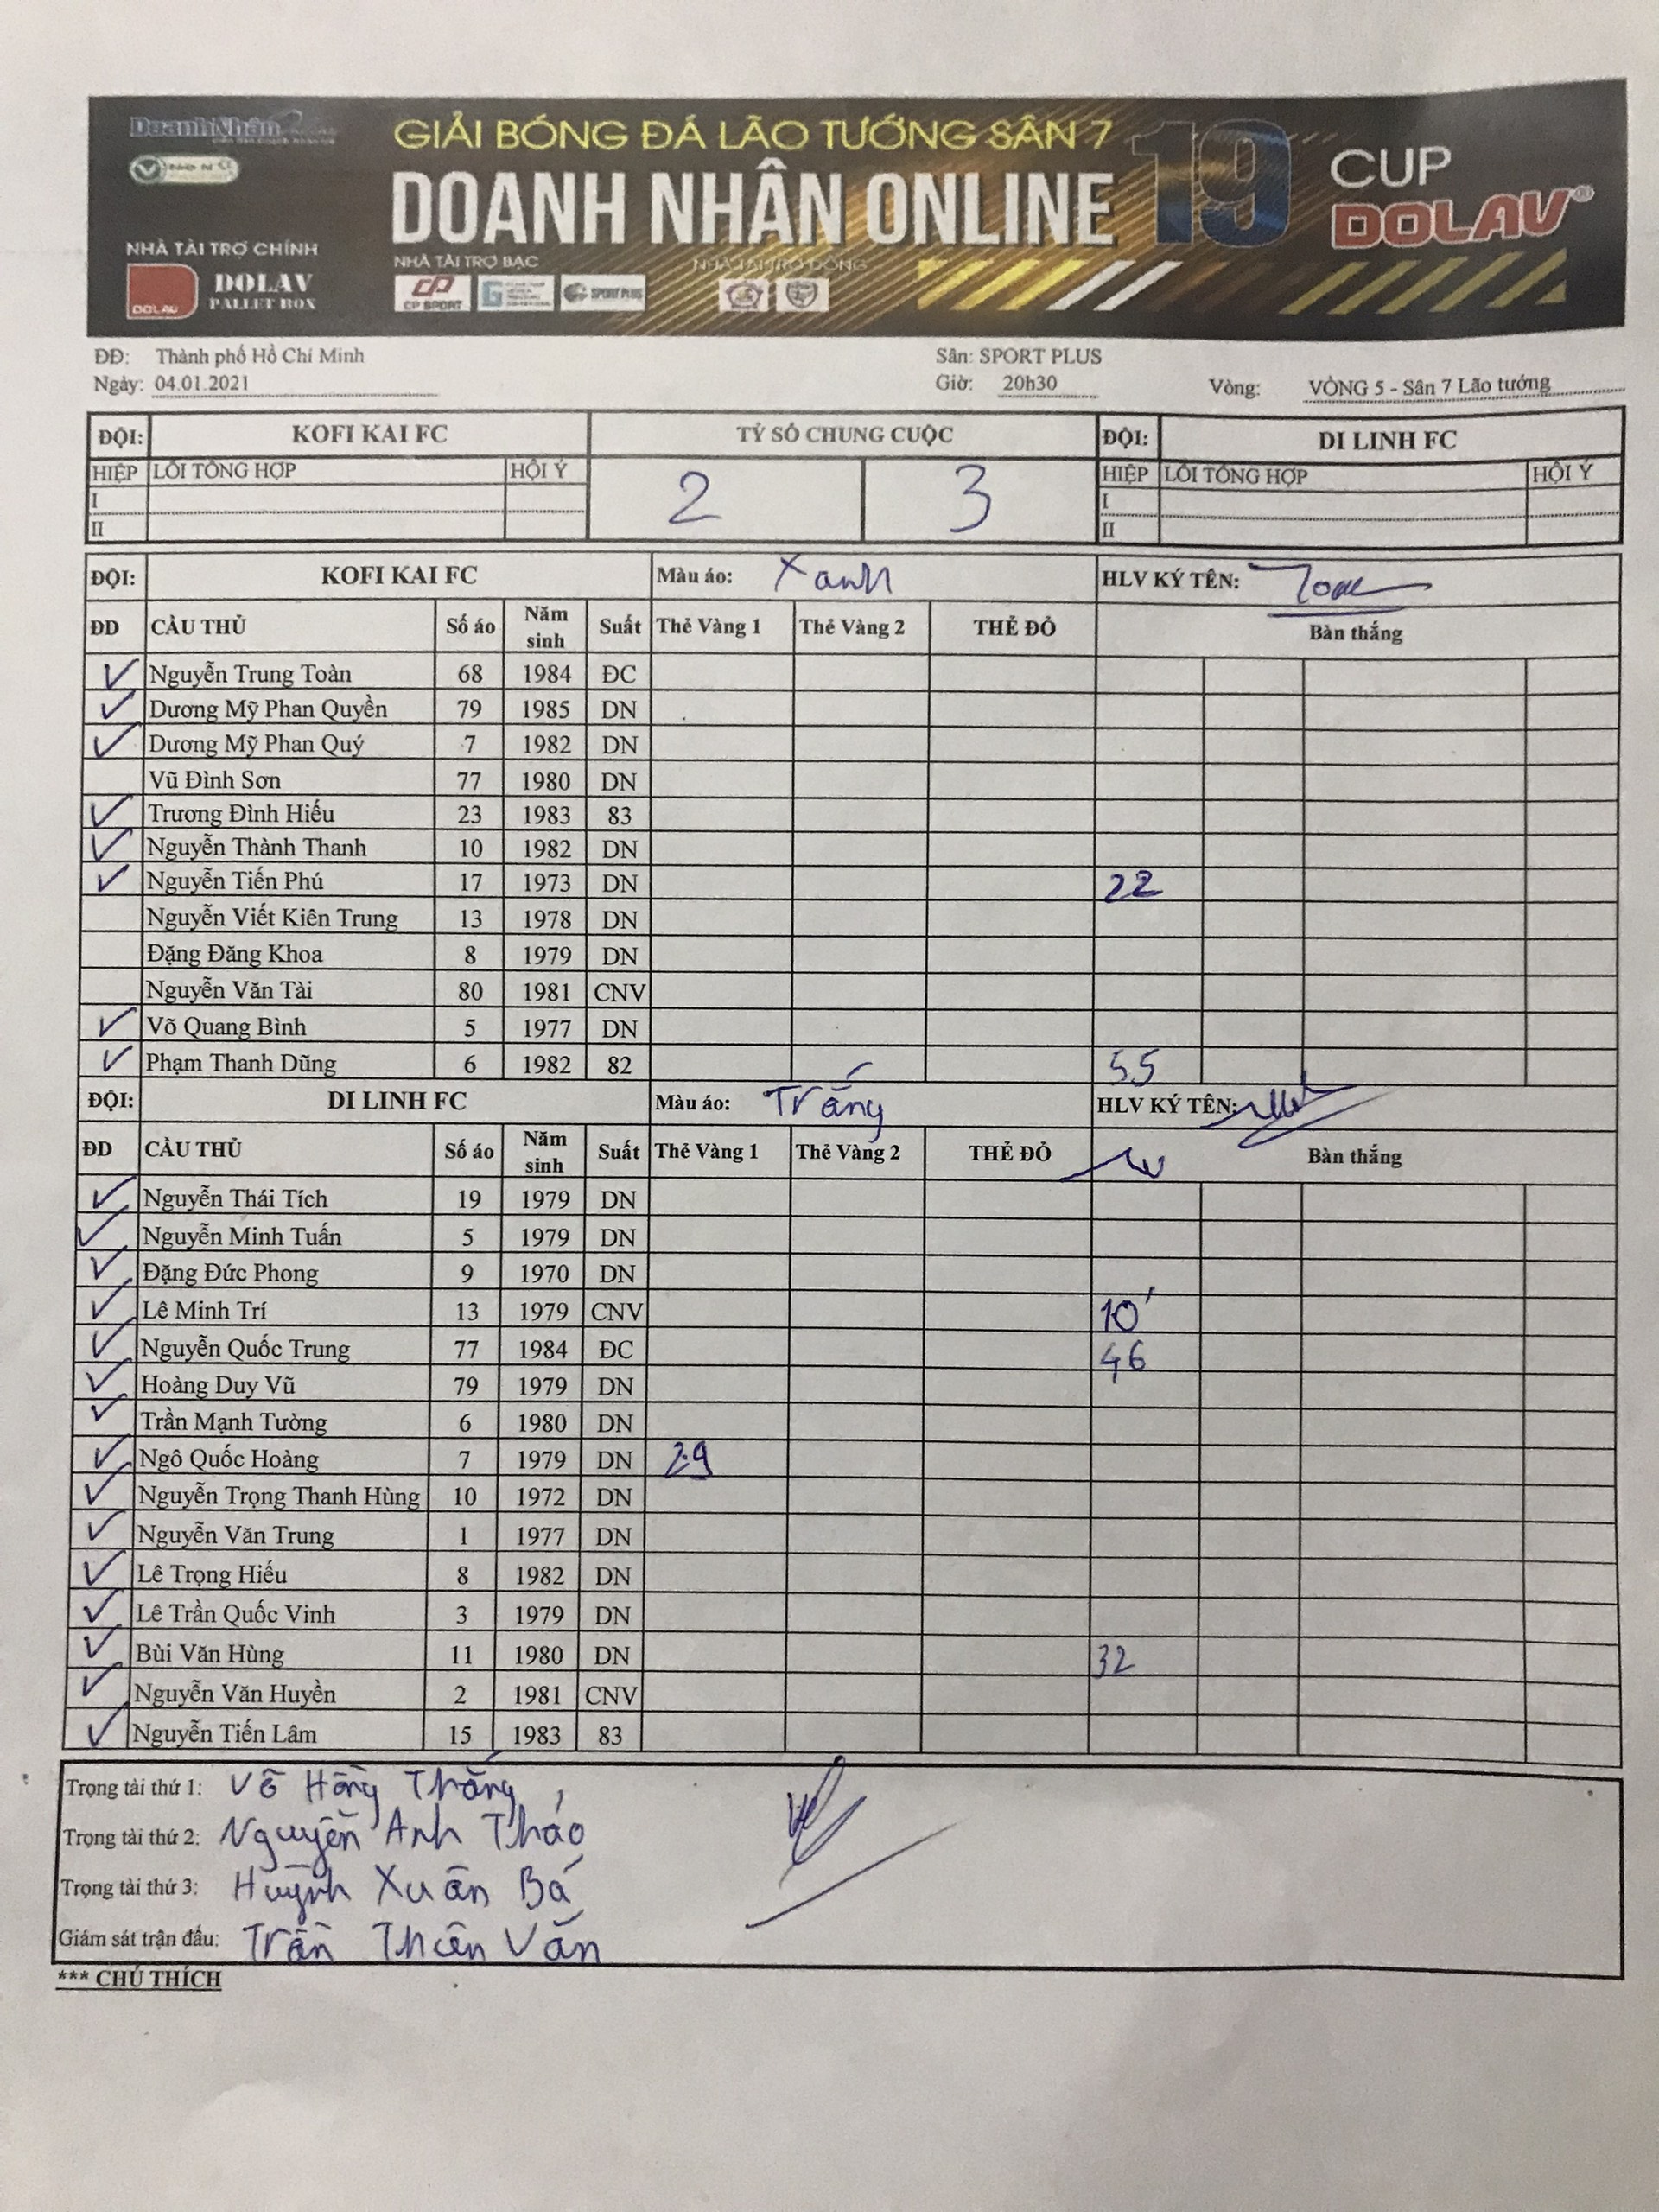 DoanhNhân
GIẢI BÓNG ĐÁ LÃO TƯỚNG SÂN 7
DOANH NHÂN ONLINE 19
CUP
DOLAV®
NHÀ TÀI TRỢ CHÍNH
NHÀ TÀI TRỢ BẠC
NHÀ TÀI TRỢ ĐỒNG
DOLAV
DOLAV
PALLET BOX
CP SPORT
SPORT PLUS
ĐĐ: Thành phố Hồ Chí Minh
Sân: SPORT PLUS
Ngày: 04.01.2021
Giờ: 20h30
Vòng: VÒNG 5 - Sân 7 Lão tướng
ĐỘI: KOFI KAI FC TỶ SỐ CHUNG CUỘC ĐỘI: DI LINH FC
HIỆP LỖI TỔNG HỢP HỘI Ý 2 3 HIỆP LỖI TỔNG HỢP HỘI Ý
I I
II II
ĐỘI: KOFI KAI FC Màu áo: Xanh HLV KÝ TÊN:
ĐD CẦU THỦ Số áo Năm sinh Suất Thẻ Vàng 1 Thẻ Vàng 2 THẺ ĐỎ Bàn thắng
Nguyễn Trung Toàn 68 1984 ĐC
Dương Mỹ Phan Quyền 79 1985 DN
Dương Mỹ Phan Quý 7 1982 DN
Vũ Đình Sơn 77 1980 DN
Trương Đình Hiếu 23 1983 83
Nguyễn Thành Thanh 10 1982 DN
Nguyễn Tiến Phú 17 1973 DN 22
Nguyễn Viết Kiên Trung 13 1978 DN
Đặng Đăng Khoa 8 1979 DN
Nguyễn Văn Tài 80 1981 CNV
Võ Quang Bình 5 1977 DN
Phạm Thanh Dũng 6 1982 82 55
ĐỘI: DI LINH FC Màu áo: Trắng HLV KÝ TÊN:
ĐD CẦU THỦ Số áo Năm sinh Suất Thẻ Vàng 1 Thẻ Vàng 2 THẺ ĐỎ Bàn thắng
Nguyễn Thái Tích 19 1979 DN
Nguyễn Minh Tuấn 5 1979 DN
Đặng Đức Phong 9 1970 DN
Lê Minh Trí 13 1979 CNV 10'
Nguyễn Quốc Trung 77 1984 ĐC 46
Hoàng Duy Vũ 79 1979 DN
Trần Mạnh Tường 6 1980 DN
Ngô Quốc Hoàng 7 1979 DN 29
Nguyễn Trọng Thanh Hùng 10 1972 DN
Nguyễn Văn Trung 1 1977 DN
Lê Trọng Hiếu 8 1982 DN
Lê Trần Quốc Vinh 3 1979 DN
Bùi Văn Hùng 11 1980 DN 32
Nguyễn Văn Huyền 2 1981 CNV
Nguyễn Tiến Lâm 15 1983 83
Trọng tài thứ 1: Võ Hồng Thắng
Trọng tài thứ 2: Nguyễn Anh Tháo
Trọng tài thứ 3: Huỳnh Xuân Bá
Giám sát trận đấu: Trần Thiên Văn
*** CHÚ THÍCH